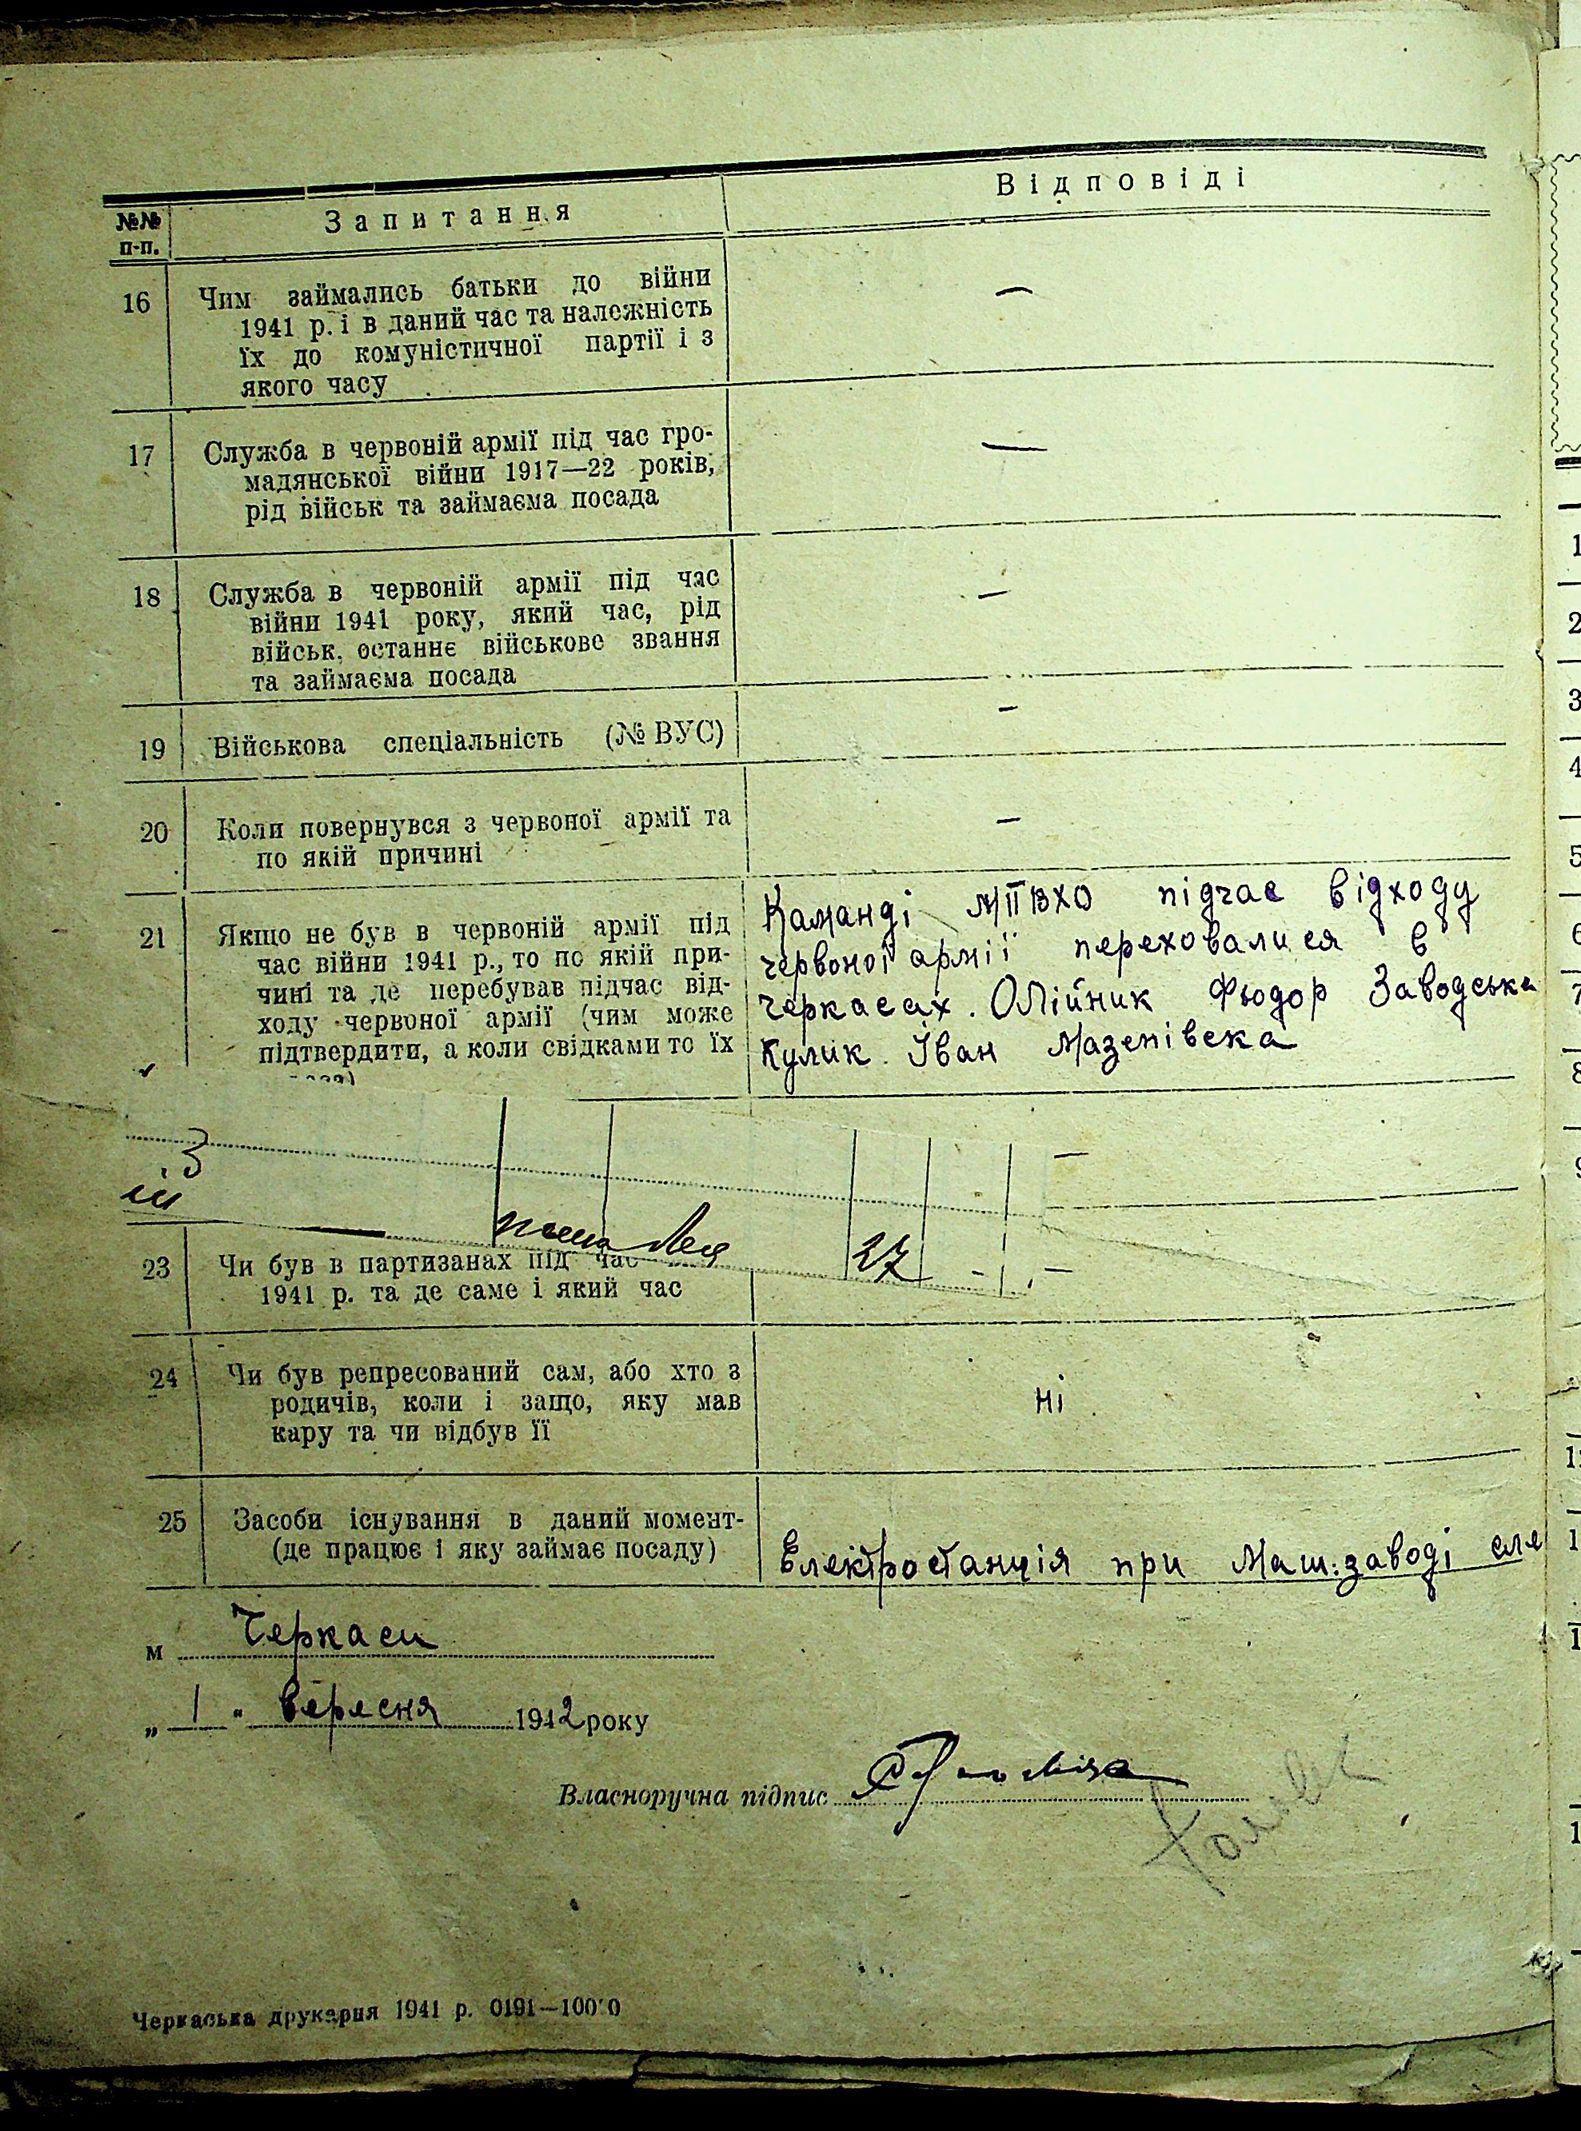 №№ п-п. Запитання Відповіді
16 Чим займались батьки до війни
1941 р. і в даний час та належність
їх до комуністичної партії і з
якого часу
—
17 Служба в червоній армії під час гро-
мадянської війни 1917—22 років,
рід військ та займаєма посада
—
18 Служба в червоній армії під час
війни 1941 року, який час, рід
військ, останнє військове звання
та займаєма посада
—
19 Військова спеціальність (№ ВУС)
—
20 Коли повернувся з червоної армії та
по якій причині
—
21 Якщо не був в червоній армії під
час війни 1941 р., то по якій при-
чині та де перебував підчас від-
ходу червоної армії (чим може
підтвердити, а коли свідками то їх
Команді МПВХО підчас відходу
червоної армії переховалися в
Черкасах. Олійник Фьодор Заводська
Кулик Іван Мазепівська
—
27 -
23 Чи був в партизанах під час
1941 р. та де саме і який час
—
24 Чи був репресований сам, або хто з
родичів, коли і защо, яку мав
кару та чи відбув її
ні
25 Засоби існування в даний момент-
(де працює і яку займає посаду)
Електростанція при Маш.заводі сле
м Черкаси
„ 1 " вересня 1942 року
Власноручна підпис
Черкаська друкарня 1941 р. 0191—100'0
1
2
3
4
5
6
7
8